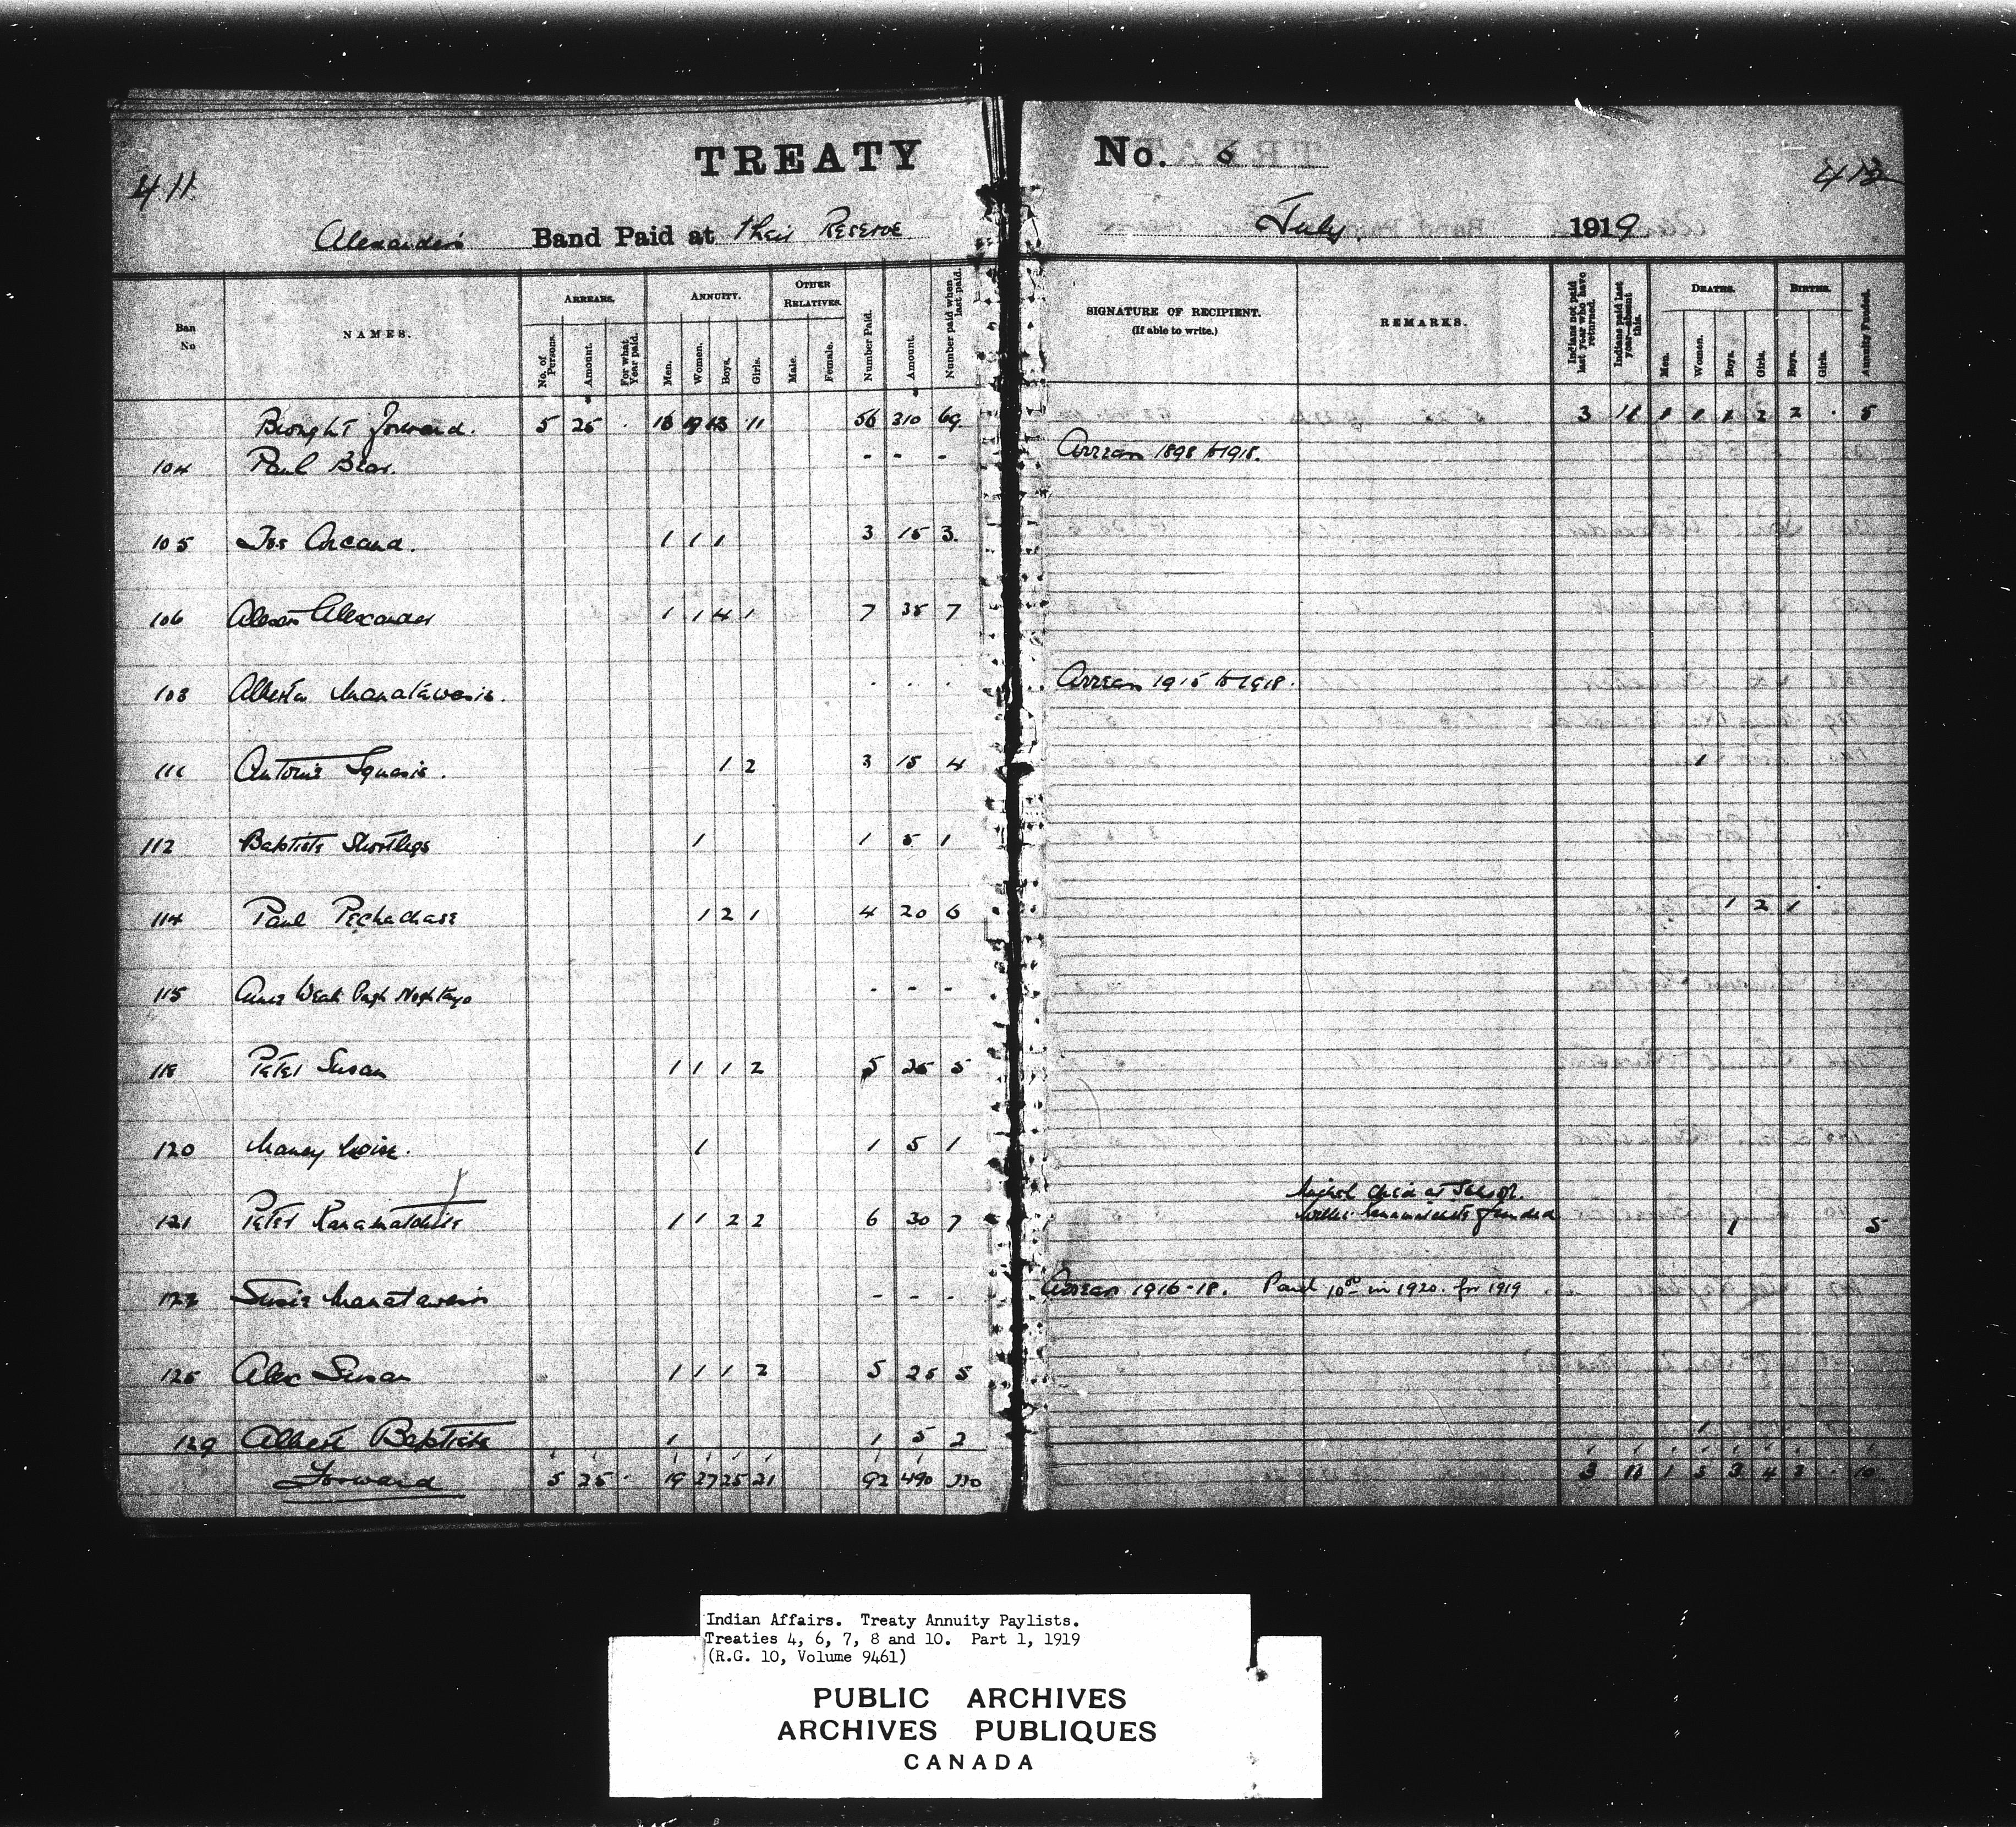 TREATY No. 6
411
Alexander's Band Paid at their Reserve July 1919
Ban No
NAMES.
ARREARS.
No. of Persons.
Amount.
For what Year paid.
ANNUITY.
Men.
Women.
Boys.
Girls.
OTHER RELATIVES.
Male.
Female.
Number Paid.
Amount.
Number paid when last paid.
SIGNATURE OF RECIPIENT.
(If able to write.)
REMARKS.
Indians not paid last year who have returned.
Indians paid last year—absent this.
DEATHS.
Men.
Women.
Boys.
Girls.
BIRTHS.
Boys.
Girls.
Annuity Funded.
Brought forward. 5 25 11 56 310 69 3 2 2 5
104 Paul Bear. - - - Arrears 1898 to 1918.
105 Jos Arcand. 1 1 1 3 15 3.
106 Alexis Alexander 1 1 4 1 7 35 7
108 Alberta Manatawasis. . . . Arrears 1915 to 1918.
111 Antoine 1 2 3 15 4 1
112 Baptiste Shortlegs 1 1 5 1
114 Paul Pechachase 1 2 1 4 20 6 1 2 1
115 - - -
118 Peter Susan 1 1 1 2 5 25 5
120 1 1 5 1
121 Peter 1 1 2 2 6 30 7 1 5
funded
Susie Manatawasis - - - Arrears 1916-18. Paid 10 00 in 1920. for 1919
125 Alex Susan 1 1 1 2 5 25 5
129 Albert Baptiste 1 1 5 2 1
Forward 5 25 19 27 25 21 92 490 3 1 3 4 10
Indian Affairs. Treaty Annuity Paylists.
Treaties 4, 6, 7, 8 and 10. Part 1, 1919
(R.G. 10, Volume 9461)
PUBLIC ARCHIVES
ARCHIVES PUBLIQUES
CANADA